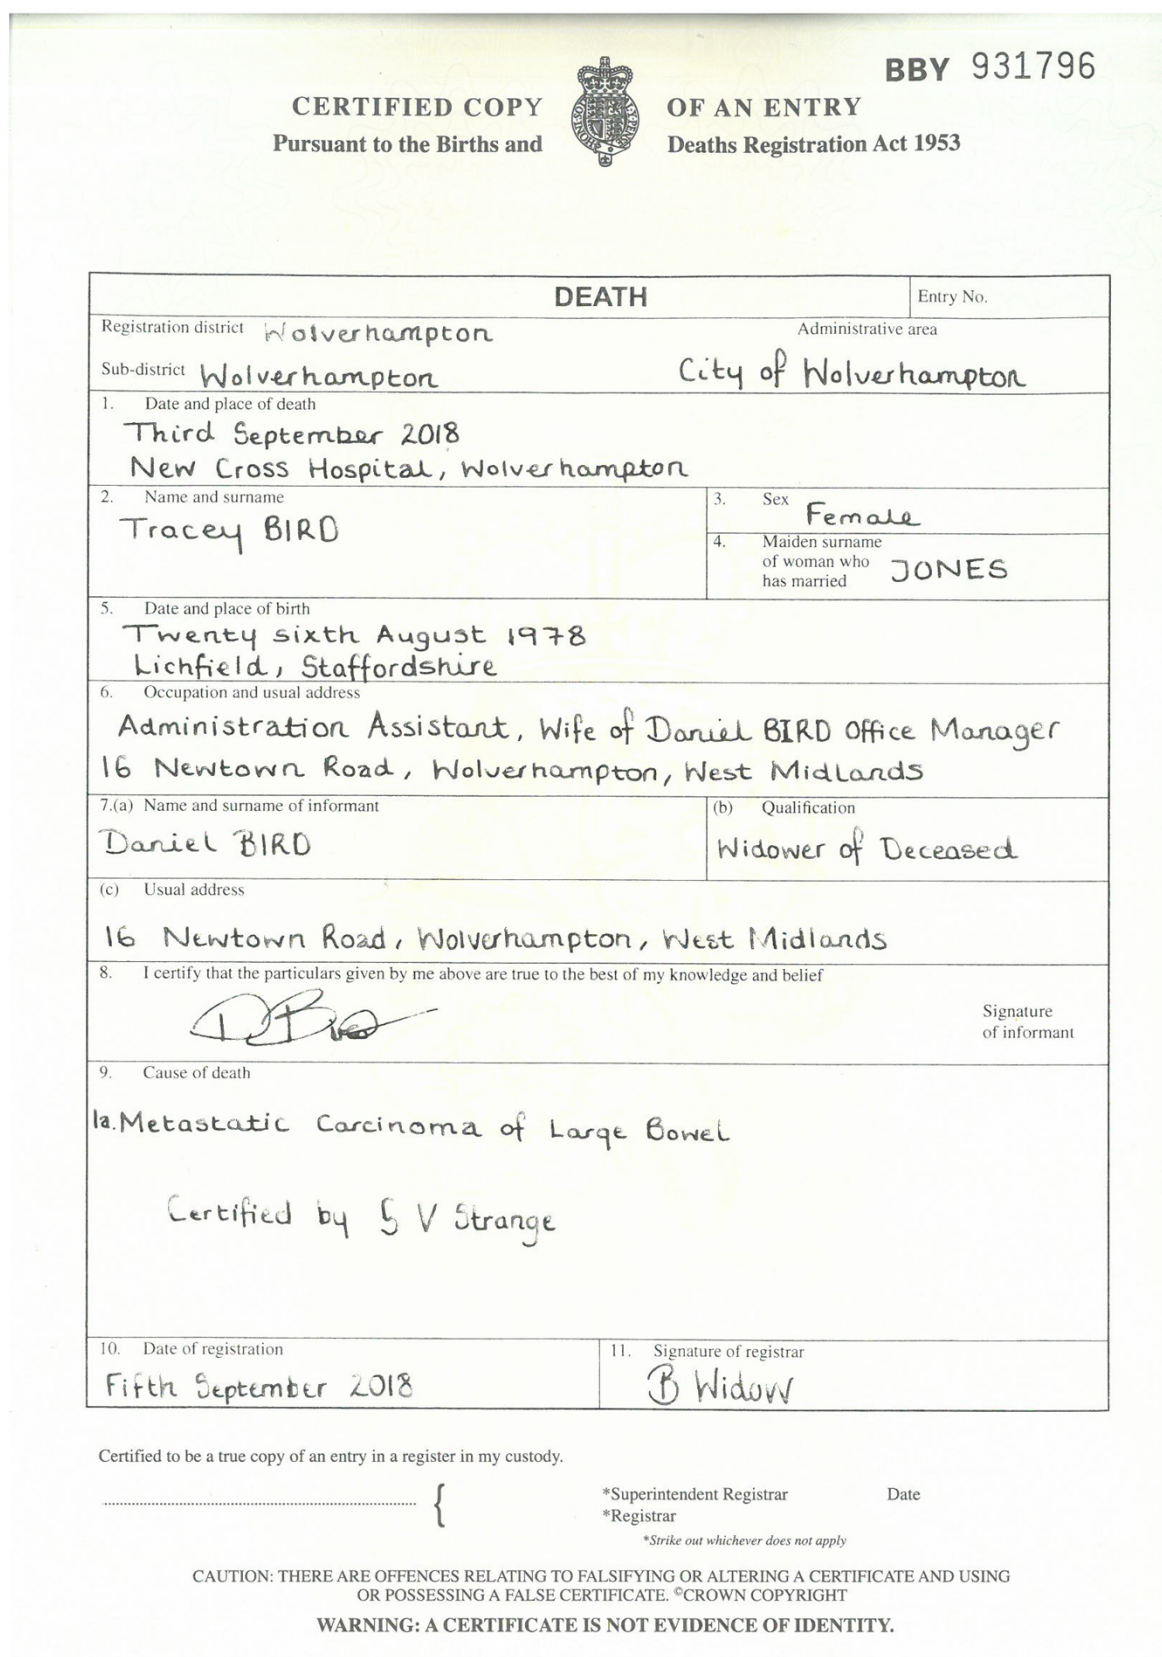 BBY 931796
CERTIFIED COPY OF AN ENTRY
Pursuant to the Births and Deaths Registration Act 1953
DEATH
Entry No.
Registration district Wolverhampton
Administrative area
Sub-district Wolverhampton
City of Wolverhampton
1. Date and place of death
Third September 2018
New Cross Hospital, Wolverhampton
2. Name and surname
Tracey BIRD
3. Sex
Female
4. Maiden surname
of woman who
has married
JONES
5. Date and place of birth
Twenty sixth August 1978
Lichfield, Staffordshire
6. Occupation and usual address
Administration Assistant, Wife of Daniel BIRD Office Manager
16 Newtown Road, Wolverhampton, West Midlands
7.(a) Name and surname of informant
Daniel BIRD
(b) Qualification
Widower of Deceased
(c) Usual address
16 Newtown Road, Wolverhampton, West Midlands
8. I certify that the particulars given by me above are true to the best of my knowledge and belief
DBird
Signature
of informant
9. Cause of death
1a. Metastatic Carcinoma of Large Bowel
Certified by S V Strange
10. Date of registration
Fifth September 2018
11. Signature of registrar
B Widow
Certified to be a true copy of an entry in a register in my custody.
*Superintendent Registrar
*Registrar
Date
*Strike out whichever does not apply
CAUTION: THERE ARE OFFENCES RELATING TO FALSIFYING OR ALTERING A CERTIFICATE AND USING
OR POSSESSING A FALSE CERTIFICATE. ©CROWN COPYRIGHT
WARNING: A CERTIFICATE IS NOT EVIDENCE OF IDENTITY.